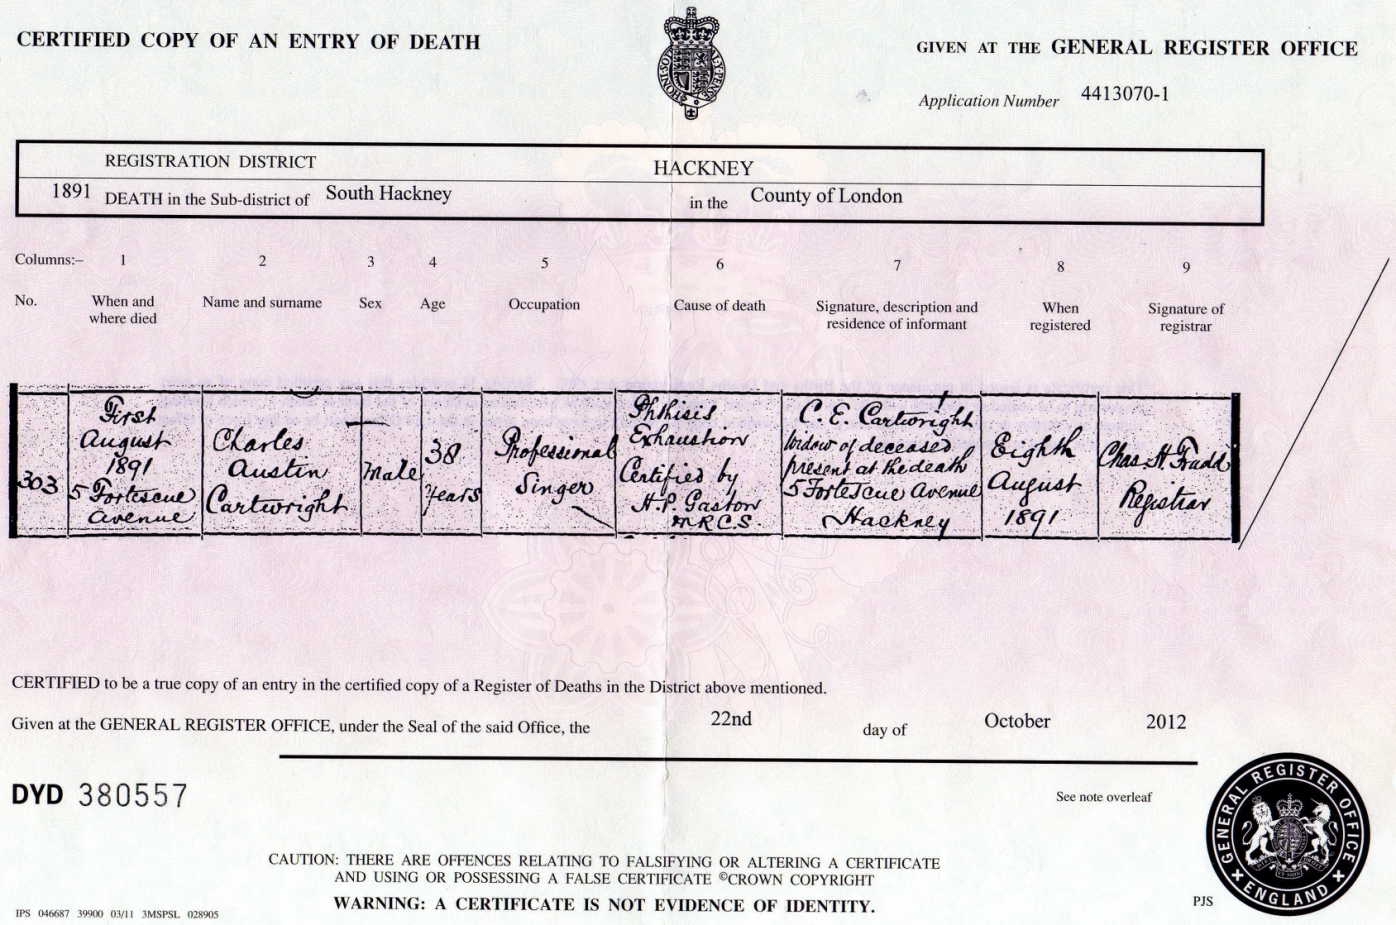 CERTIFIED COPY OF AN ENTRY OF DEATH
GIVEN AT THE GENERAL REGISTER OFFICE
Application Number 4413070-1
REGISTRATION DISTRICT HACKNEY
1891 DEATH in the Sub-district of South Hackney in the County of London
Columns:– 1 2 3 4 5 6 7 8 9
No.
When and
where died
Name and surname
Sex
Age
Occupation
Cause of death
Signature, description and
residence of informant
When
registered
Signature of
registrar
303
First
August
1891
5 Fortescue
Avenue
Charles
Austin
Cartwright
Male
38
years
Professional
Singer
Phthisis
Exhaustion
Certified by
H. P. Gaston
M.R.C.S.
C. E. Cartwright
widow of deceased
present at the death
5 Fortescue Avenue
Hackney
Eighth
August
1891
Chas. H.
Registrar
CERTIFIED to be a true copy of an entry in the certified copy of a Register of Deaths in the District above mentioned.
Given at the GENERAL REGISTER OFFICE, under the Seal of the said Office, the 22nd day of October 2012
DYD 380557
See note overleaf
GENERAL REGISTER OFFICE
ENGLAND
CAUTION: THERE ARE OFFENCES RELATING TO FALSIFYING OR ALTERING A CERTIFICATE
AND USING OR POSSESSING A FALSE CERTIFICATE ©CROWN COPYRIGHT
WARNING: A CERTIFICATE IS NOT EVIDENCE OF IDENTITY.
IPS 046687 39900 03/11 3MSPSL 028905
PJS